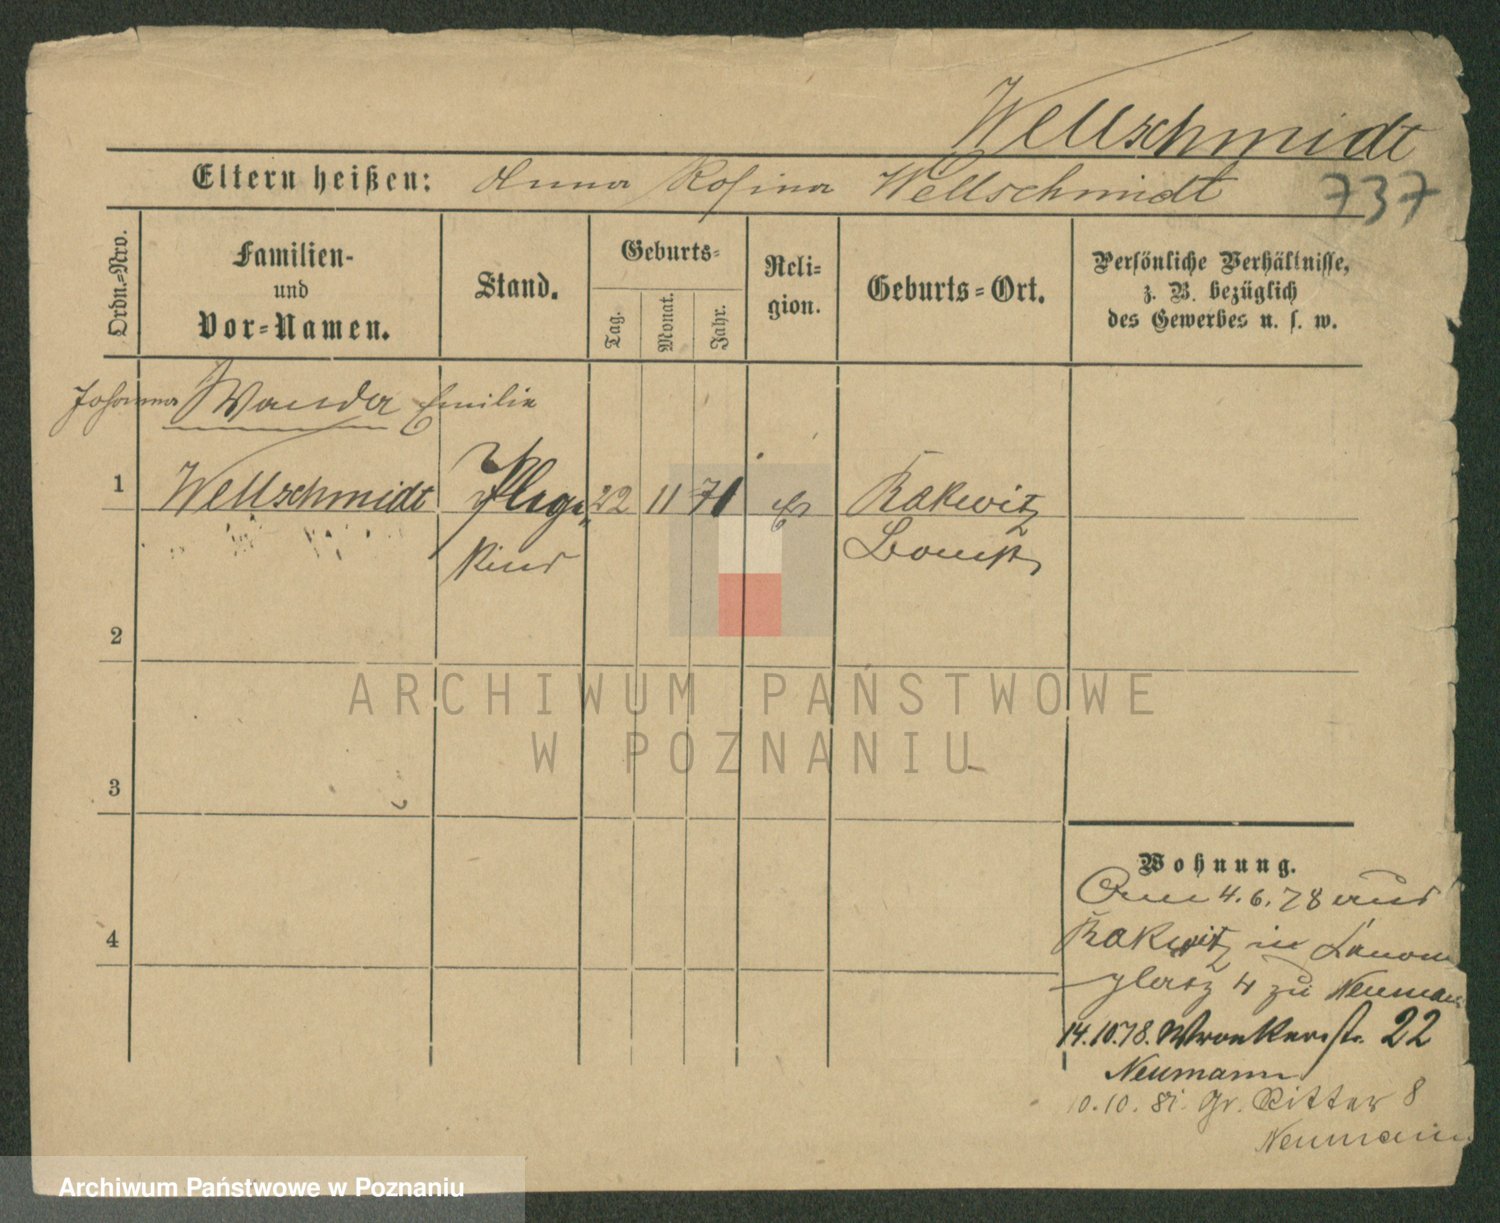 Wellschmidt
Eltern heißen: Anna Rosina Wellschmidt
737
Ordn.-Nro.
Familien-
und
Vor-Namen.
Stand.
Geburts-
Tag.
Monat.
Jahr.
Reli-
gion.
Geburts-Ort.
Persönliche Verhältnisse,
z. B. bezüglich
des Gewerbes u. s. w.
Johanna Wanda Emilie
1 Wellschmidt Pflege 22 11 71 ev Rakwitz
Kind Bomst
2
ARCHIWUM PAŃSTWOWE
W POZNANIU
3
Wohnung.
Am 4.6.78 aus
4 Rakwitz in Kanonen
platz 4 zu Neumann
14.10.78. Wronkerstr. 22
Neumann
10.10.81. Gr. Ritter 8
Neumann
Archiwum Państwowe w Poznaniu